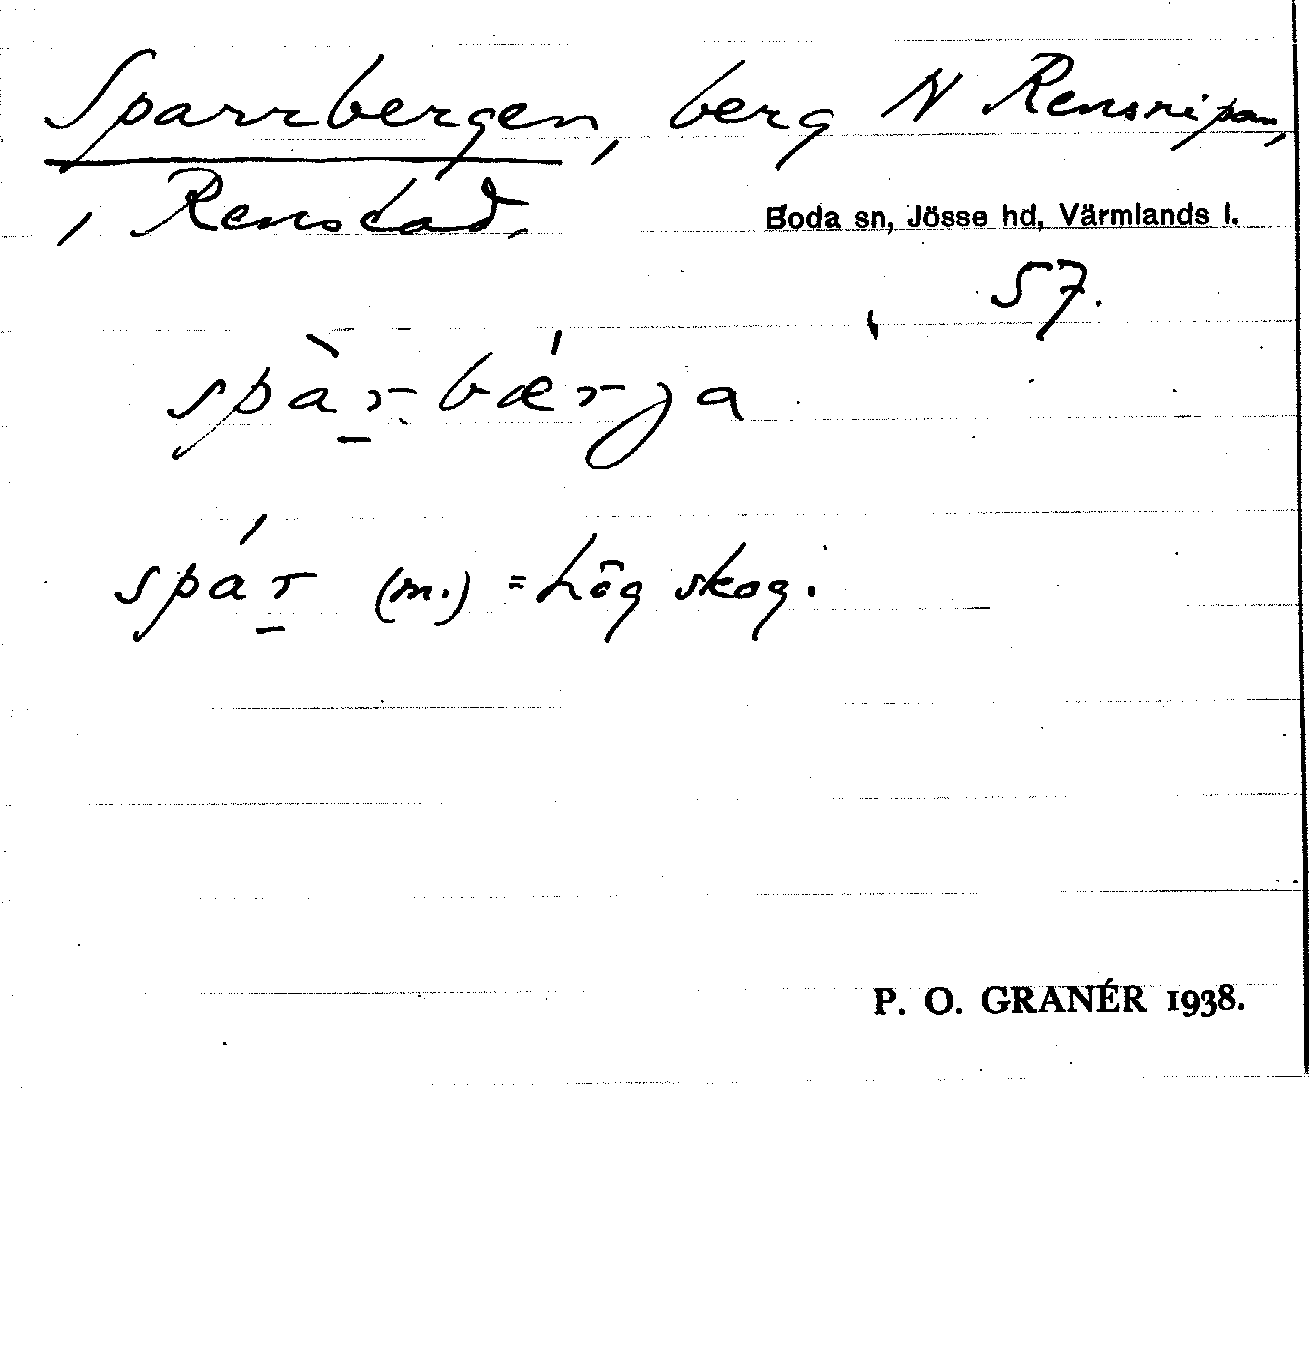 Sparrbergen, berg N Rensripan,
i Renstad.
Boda sn, Jösse hd, Värmlands l.
57.
spàr̲bǽrja
spár̲ (m.) = hög skog.
P. O. GRANÉR 1938.